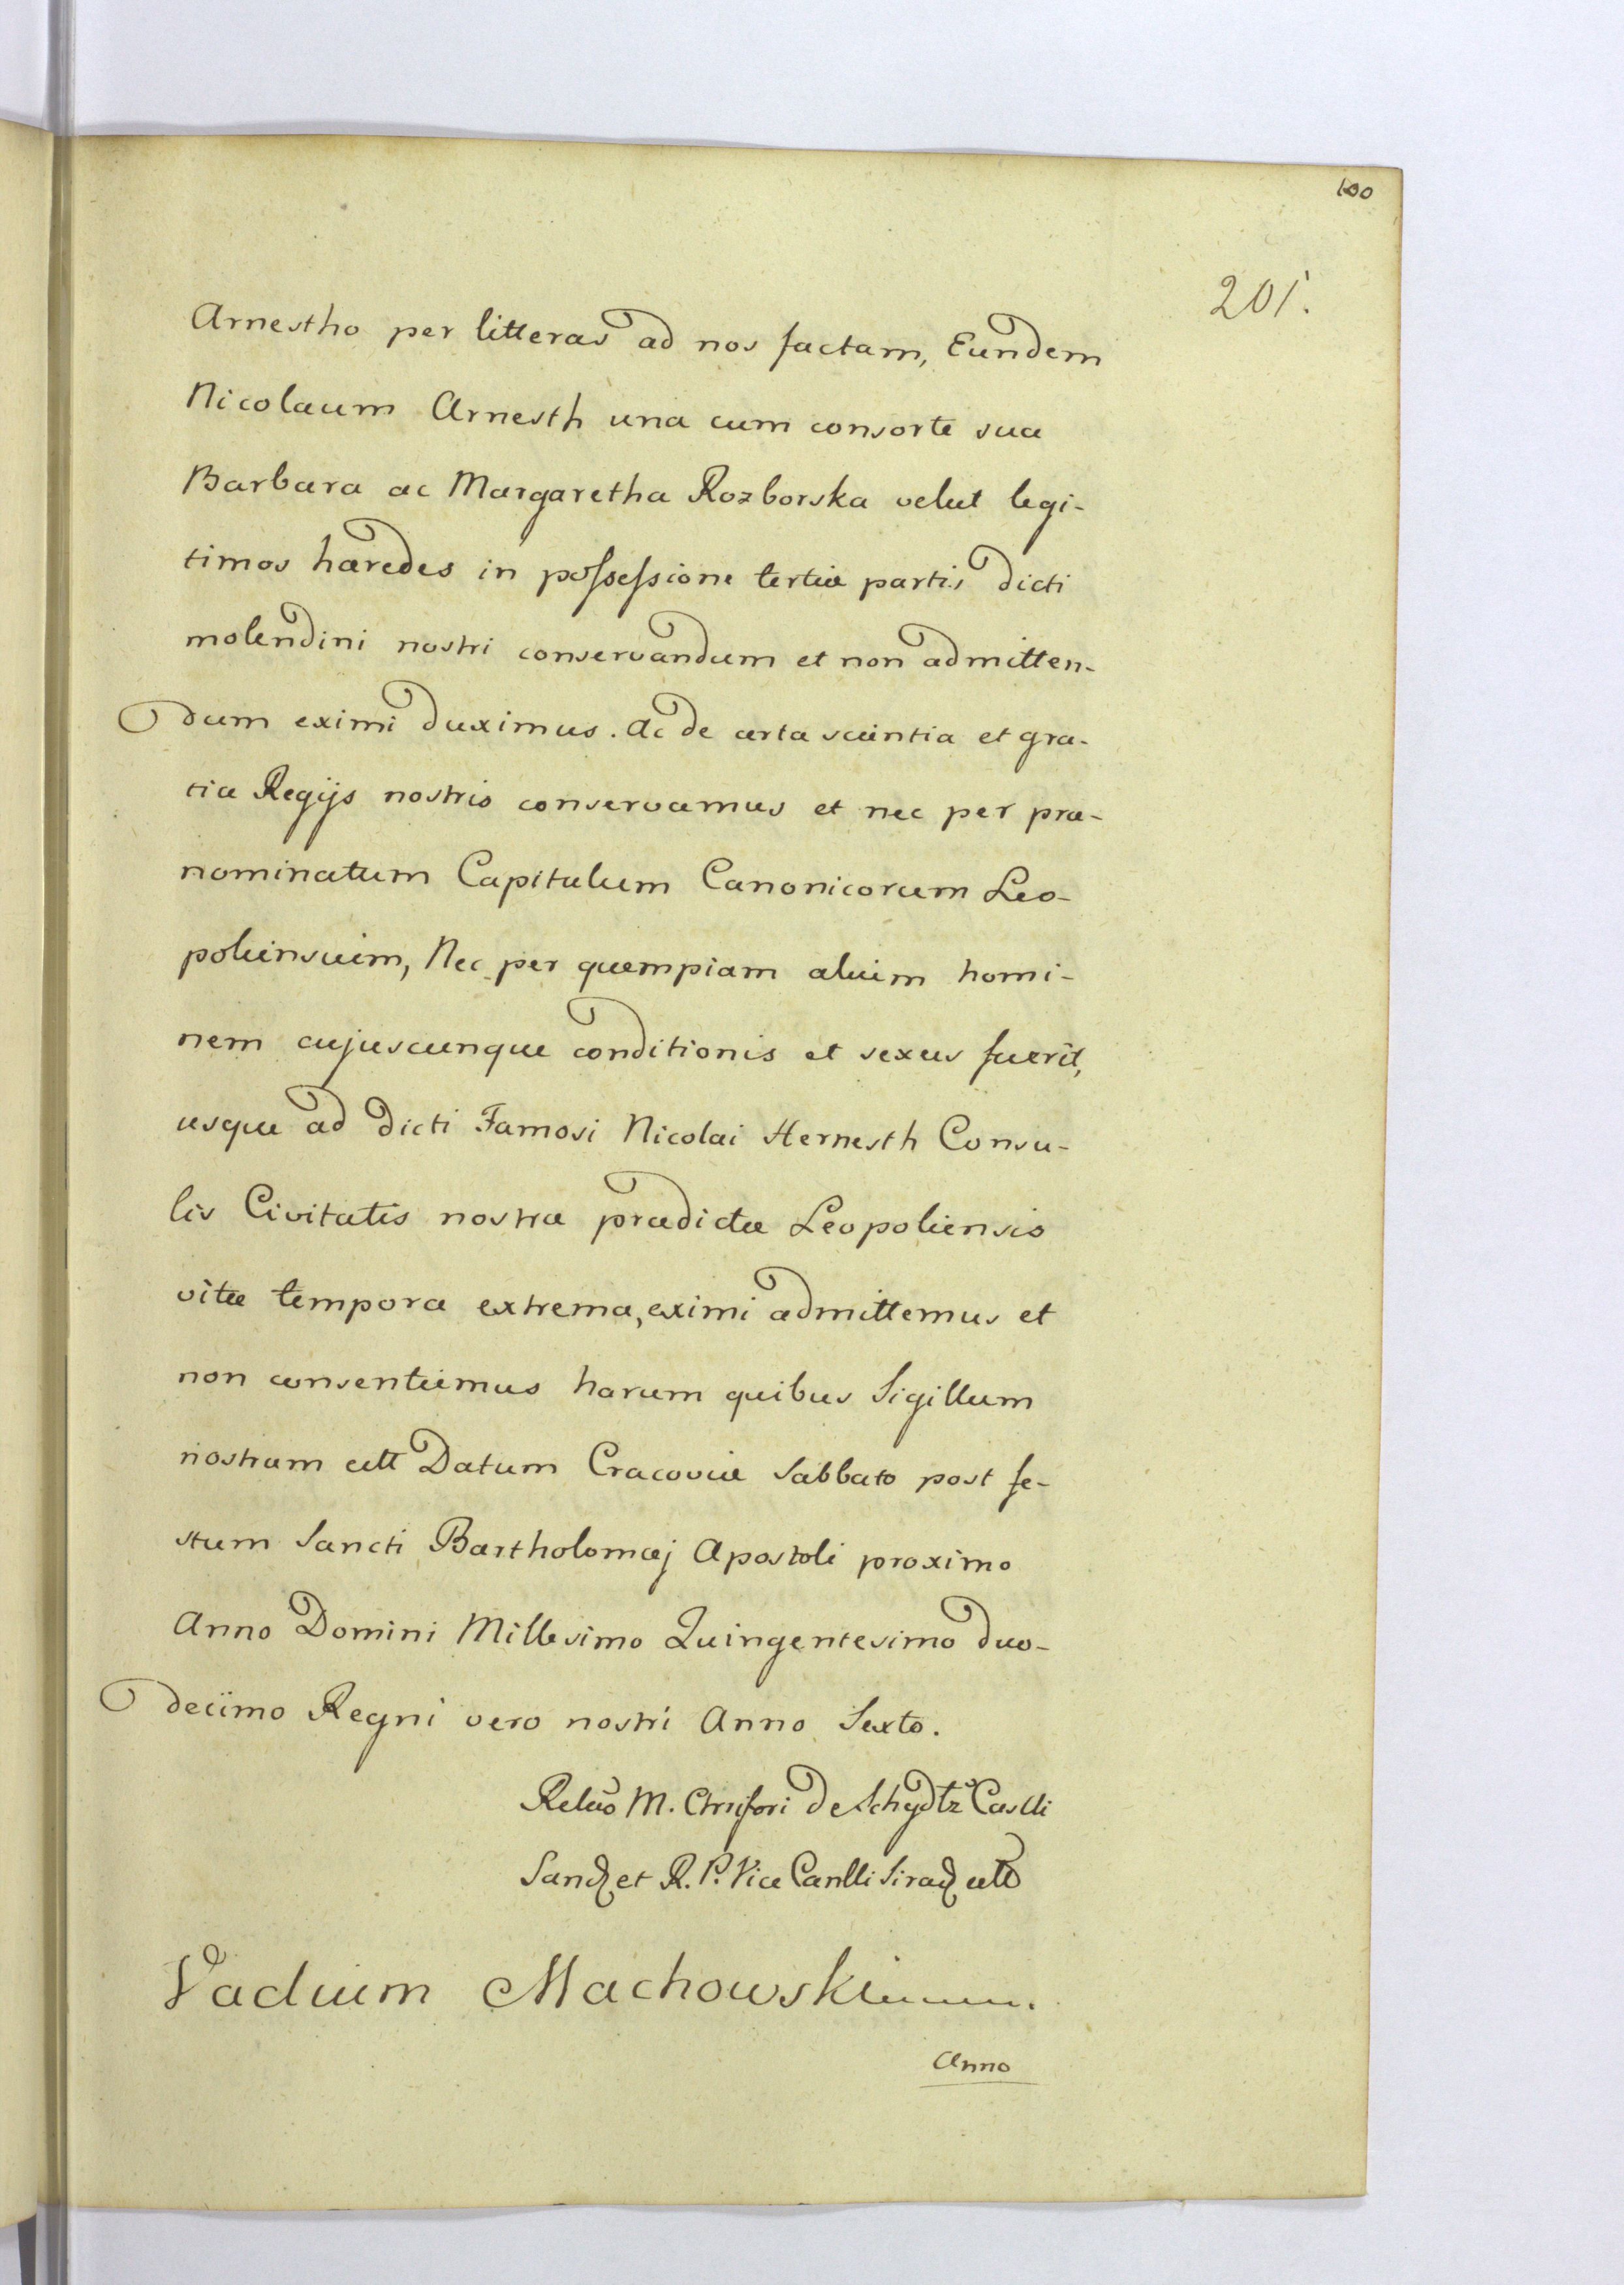 100
201.
Arnestho per litteras ad nos factam, Eundem
Nicolaum Arnesth una cum consorte sua
Barbara ac Margaretha Rozborska velut legi-
timos hæredes in possessione tertiæ partis dicti
molendini nostri conservandum et non admitten-
dum eximi duximus. Ac de certa scientia et gra-
tia Regijs nostris conservamus et nec per præ-
nominatum Capitulum Canonicorum Leo-
poliensium, Nec per quempiam alium homi-
nem cujuscunque conditionis et sexus fuerit,
usque ad dicti Famosi Nicolai Hernesth Consu-
lis Civitatis nostræ prædictæ Leopoliensis
vitæ tempora extrema, eximi admittemus et
non consentiemus harum quibus Sigillum
nostrum ett Datum Cracoviæ Sabbato post fe-
stum Sancti Bartholomæj Apostoli proximo
Anno Domini Millesimo Quingentesimo duo-
decimo Regni vero nostri Anno Sexto.
Relatio M. Chrisfori de Schydtz Caslli
Sand et R. P. Vice Canlli Sirad ett
Vadium Machowski
Anno